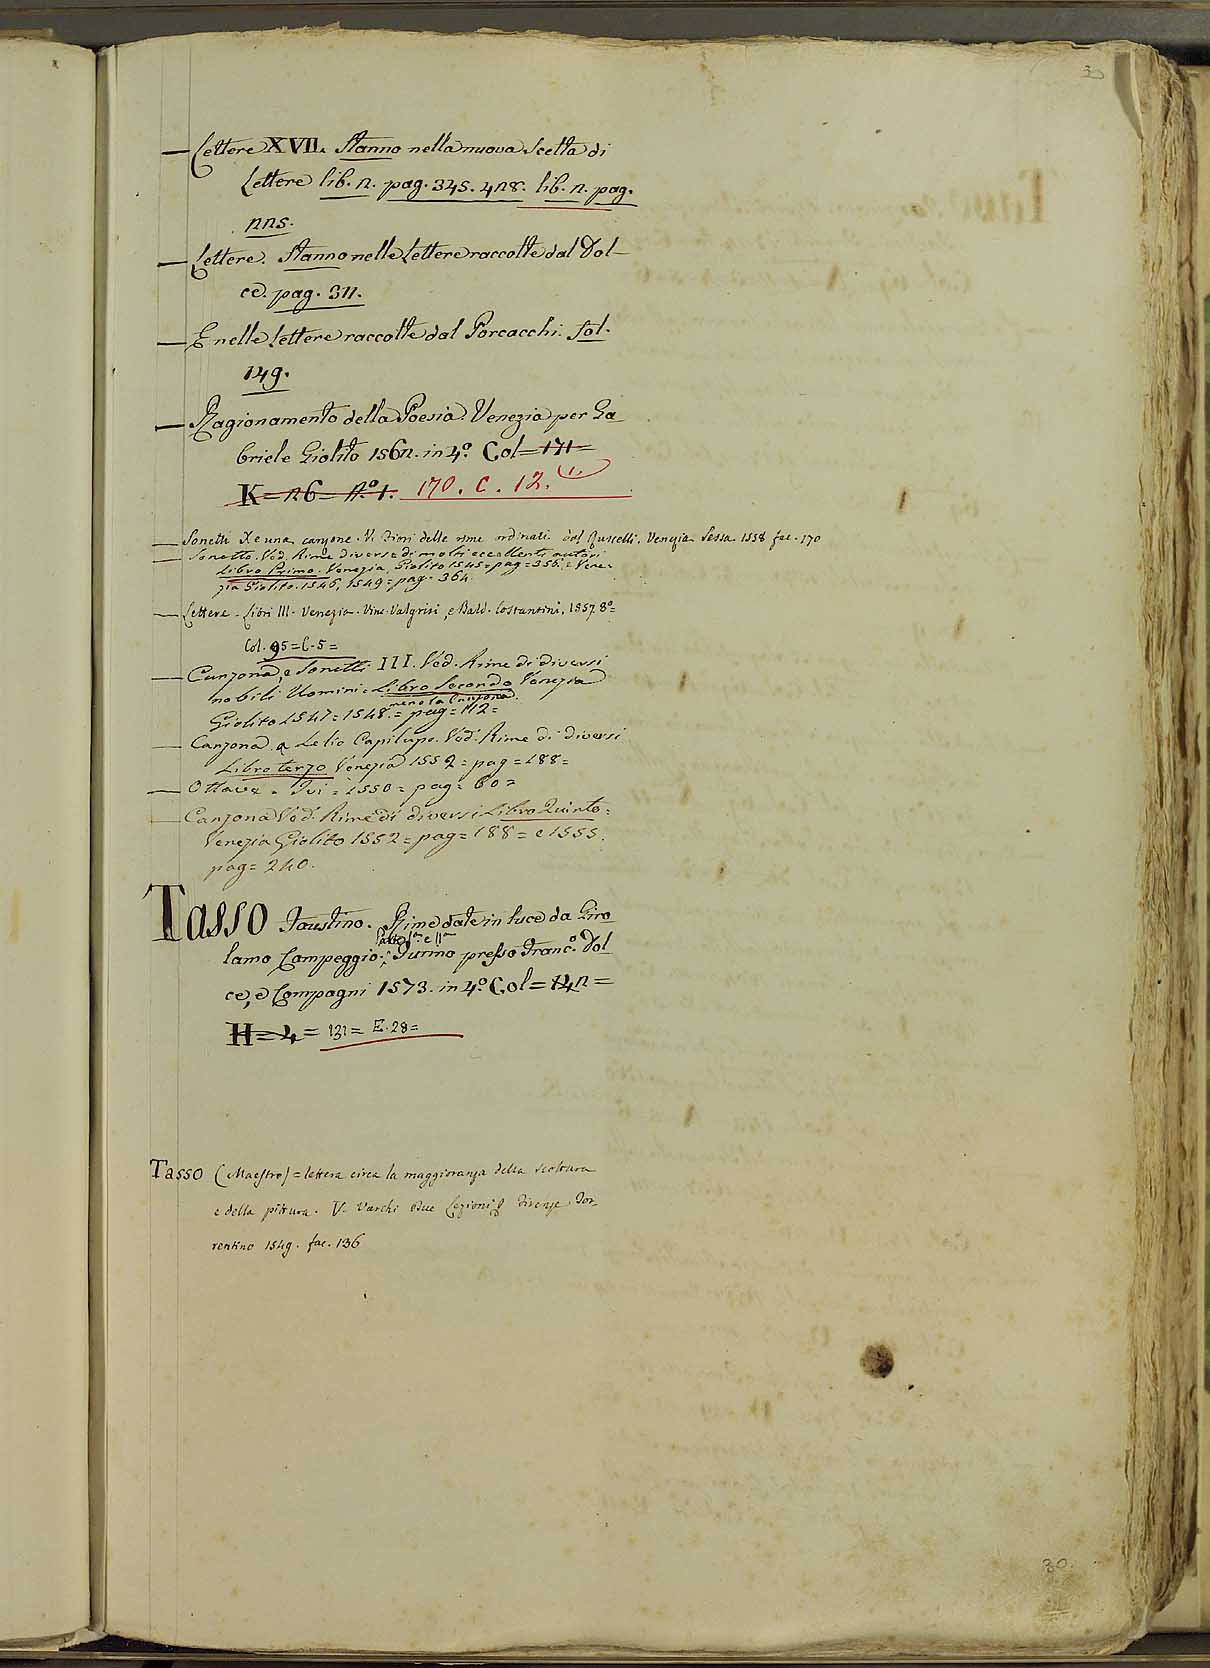 30
— Lettere XVII. Stanno nella nuova Scelta di
Lettere lib. 2. pag. 345. 428. lib. 2. pag.
225.
— Lettere. Stanno nelle Lettere raccolte dal Dol-
ce. pag. 311.
— E nelle Lettere raccolte dal Porcacchi. fol.
149.
— Ragionamento della Poesia. Venezia per Ga
briele Giolito 1562. in 4º. Col = 171 =
K = 26 = Nº. 1. 170. C. 12.
— Sonetti X e una canzone. V. Fiori delle rime ordinati dal Ruscelli. Venezia Sessa 1558 fac. 170
— Sonetto. Ved. Rime diverse di molti eccellenti autori
Libro Primo. Venezia Giolito 1545 = pag = 356. = Vene-
zia Giolito. 1546, 1549 = pag. 364.
— Lettere. Libri III. Venezia. Vinc. Valgrisi, e Bald. Costantini, 1557. 8º =
Col. 95 = C. 5 =
— Canzona, e Sonetti III. Ved. Rime di diversi
nobili Uomini. Libro Secondo Venezia
meno la Canzona.
Giolito 1547 = 1548. = pag = 112 =
— Canzona a Lelio Capilupo. Ved. Rime di diversi
Libro terzo Venezia 1552 = pag = 188 =
— Ottave = Ivi = 1550 = pag = 60 =
— Canzona Ved. Rime di diversi Libro Quinto =
Venezia Giolito 1552 = pag = 188 = e 1555.
pag = 240.
Tasso Faustino. Rime date in luce da Giro
Parte Iª e IIª
lamo Campeggio. Turino presso Francº. Dol
ce, e Compagni 1573. in 4º. Col = 142 =
H = 4 = 131 = E. 28 =
Tasso (Maestro) = lettera circa la maggioranza della scoltura
e della pittura. V. Varchi Due Lezioni Firenze Tor-
rentino 1549. fac. 136
30.